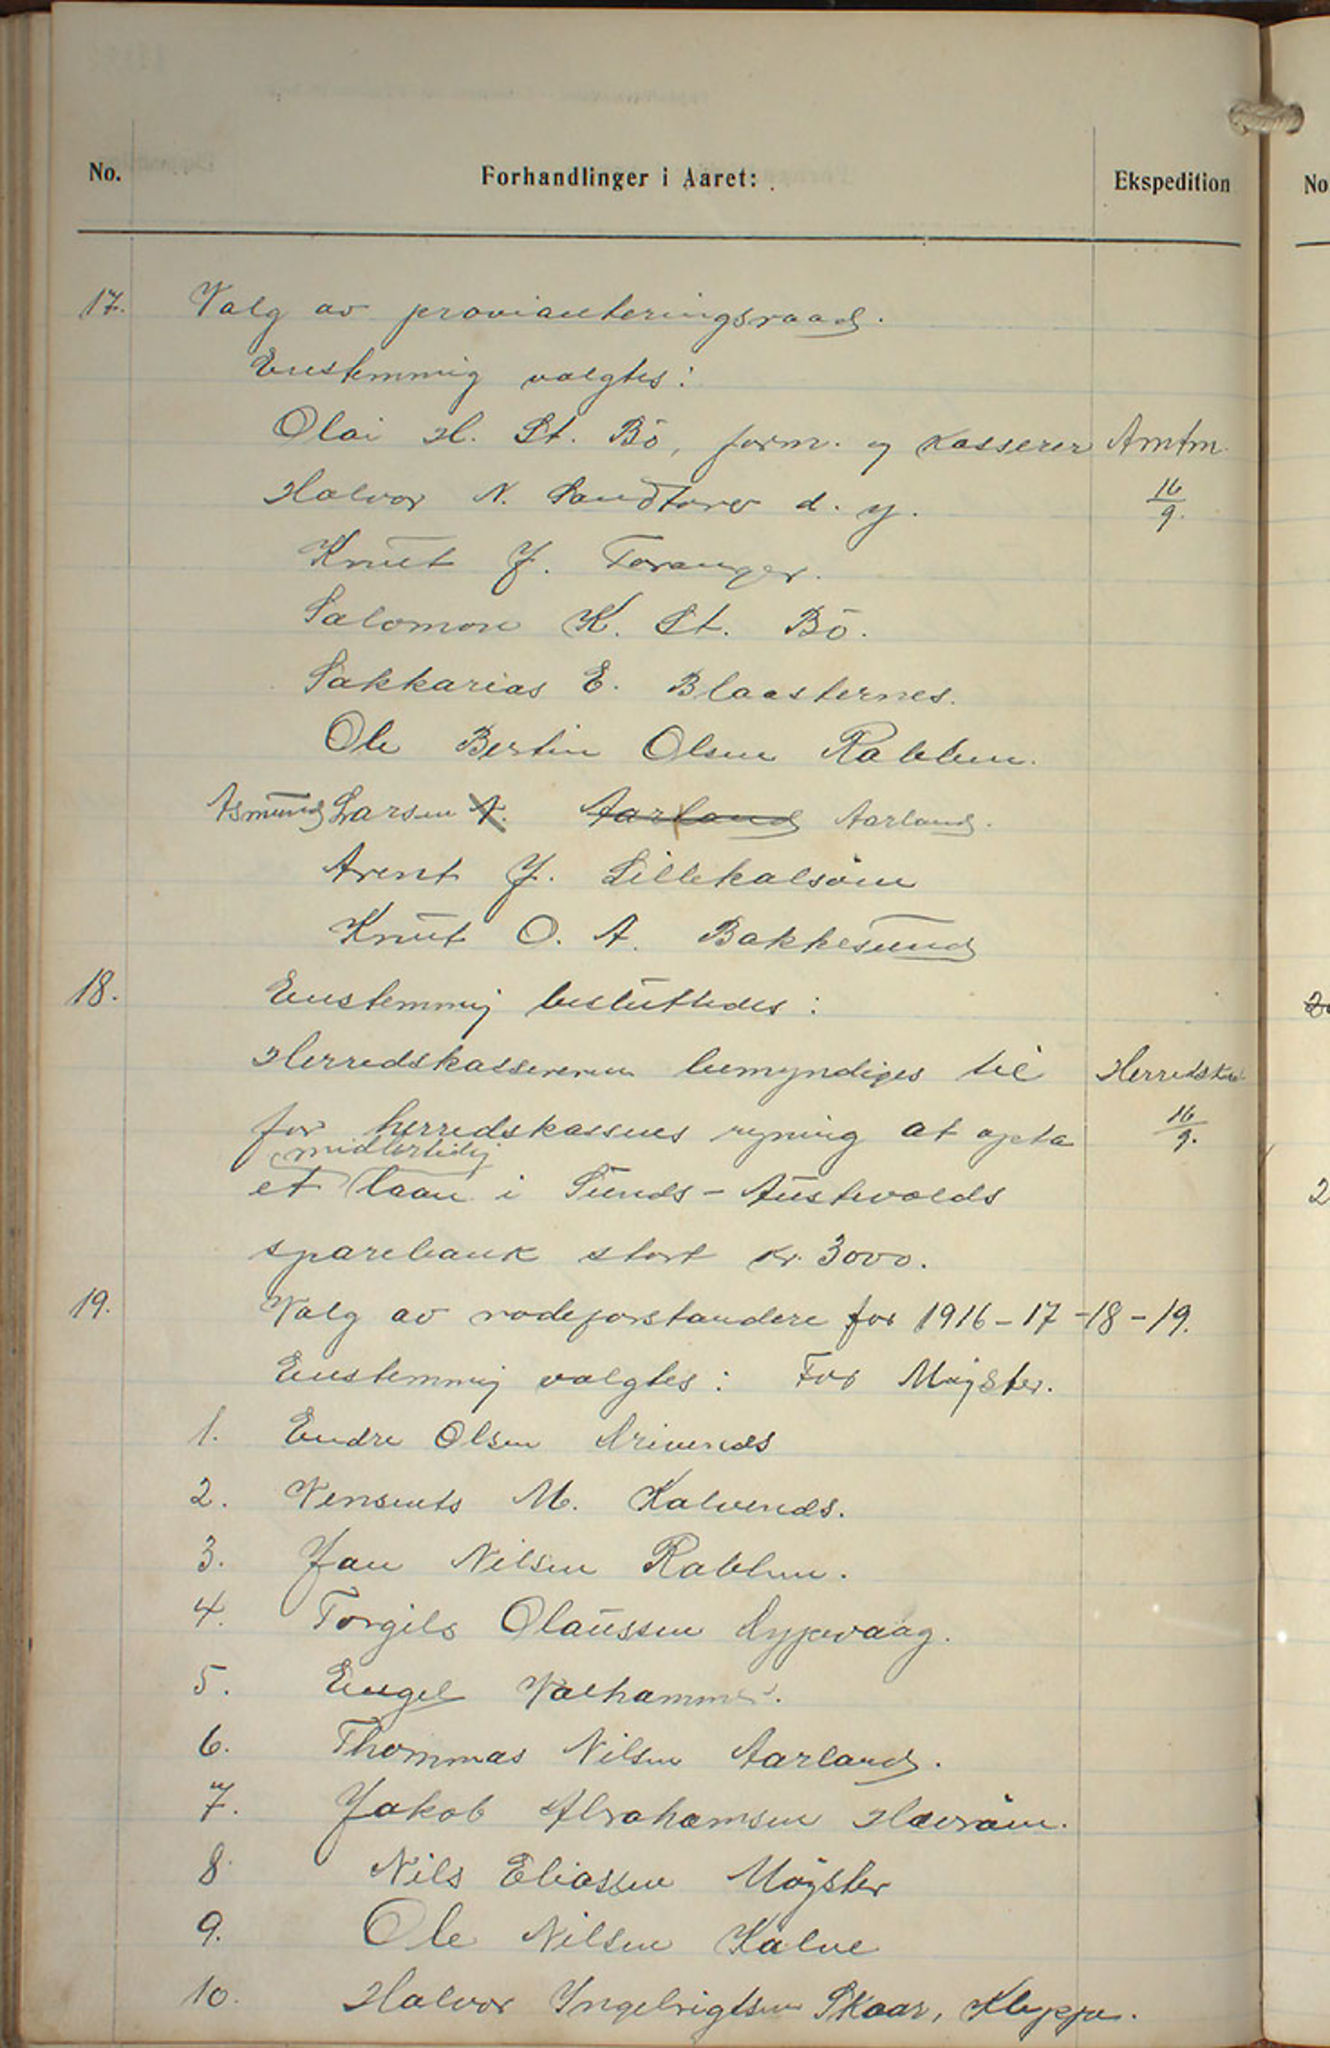 No. Forhandlinger i Aaret: Ekspedition No
17. Valg av provianteringsraad.
Enstemmig valgtes:
Olai H. St. Bö, form. og kasserer Amtm.
Halvor N. Sandtorv d. y. 16/9.
Knut J. Toranger.
Salomon K. St. Bö.
Sakkarias E. Blaasternes.
Ole Bertin Olsen Rabben.
Asmund Larsen A. Aarland Aarland.
Arent J. Lillekalsöen
Knut O. A. Bakkesund
18. Enstemmig besluttedes:
Herredskassereren bemyndiges til Herredskas
for herredskassens regning at opta 16/9.
midlertidig
et laan i Sunds-Austevolds
sparebank stort kr. 3000.
19. Valg av rodeforstandere for 1916-17-18-19.
Enstemmig valgtes: For Møgster.
1. Endre Olsen Drivenes
2. Vensents M. Kalvenes.
3. Jan Nilsen Rabben.
4. Torgils Olaussen Drypevaag.
5. Engel Valhammer.
6. Thommas Nilsen Aarland.
7. Jakob Abrahamsen Hevröen.
8 Nils Eliassen Møgster
9. Ole Nilsen Kalve
10. Halvor Ingebrigtsen Skaar, Kleppe.